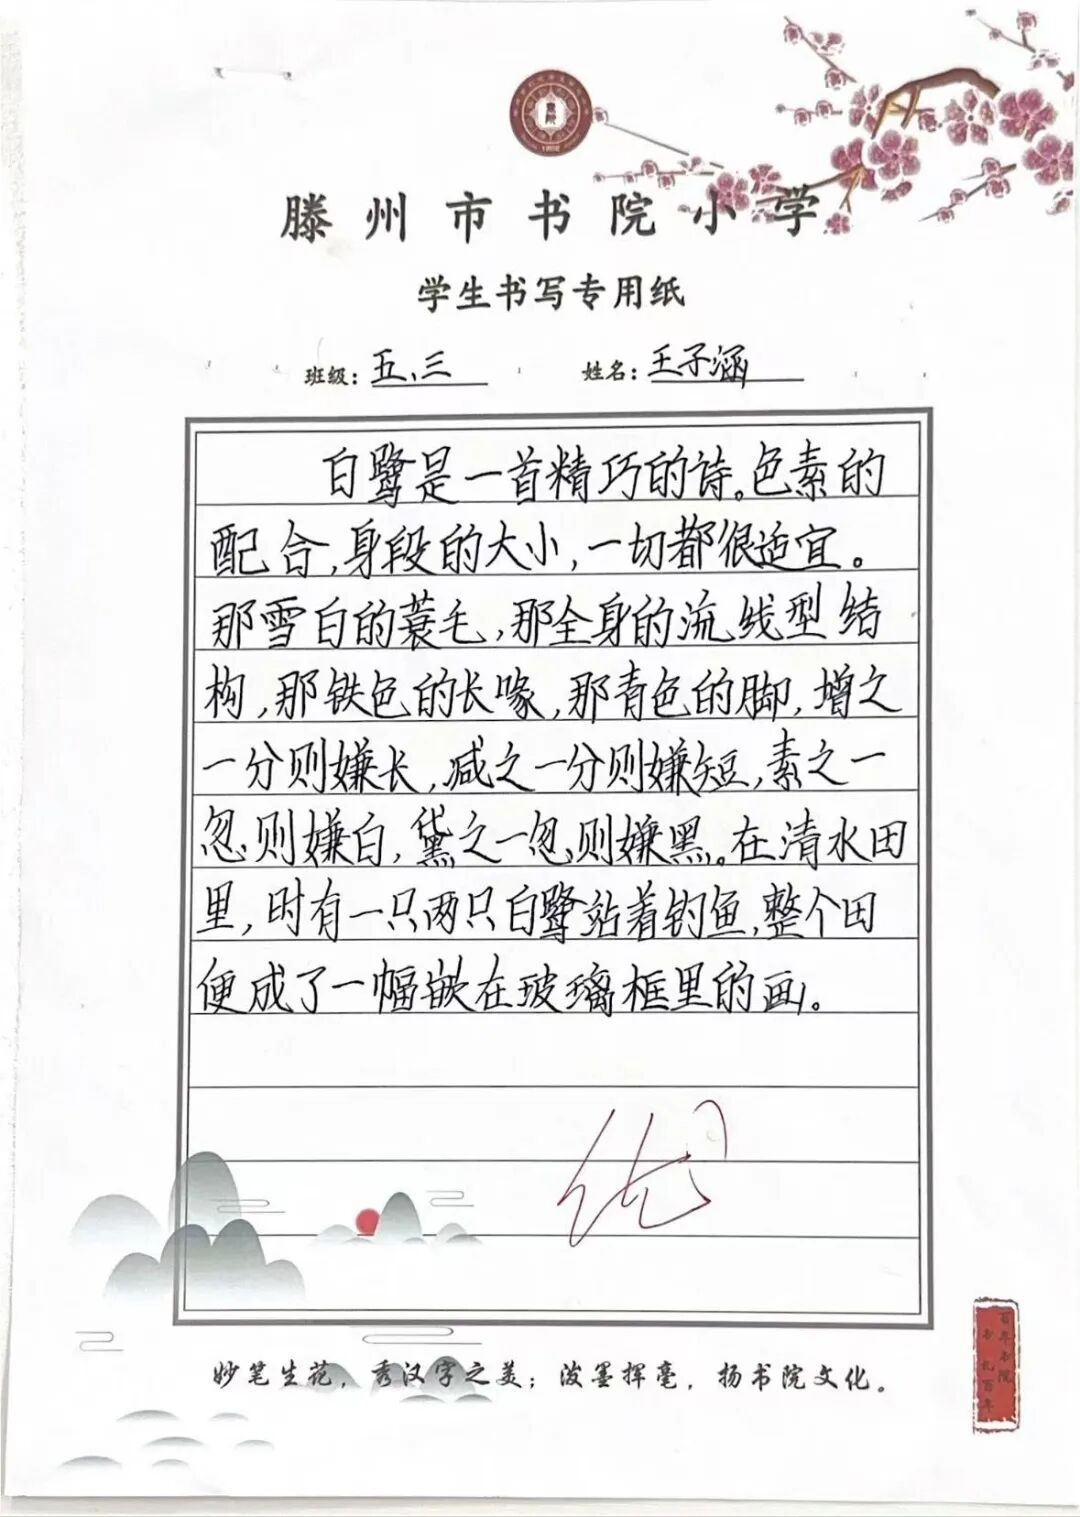 滕州市书院小学
学生书写专用纸
班级：五、三 姓名：王子涵
白鹭是一首精巧的诗。色素的
配合，身段的大小，一切都很适宜。
那雪白的蓑毛，那全身的流线型结
构，那铁色的长喙，那青色的脚，增之
一分则嫌长，减之一分则嫌短，素之一
忽则嫌白，黛之一忽则嫌黑。在清水田
里，时有一只两只白鹭站着钓鱼，整个田
便成了一幅嵌在玻璃框里的画。
优
妙笔生花，秀汉字之美；泼墨挥毫，扬书院文化。
百年书院
书礼百年